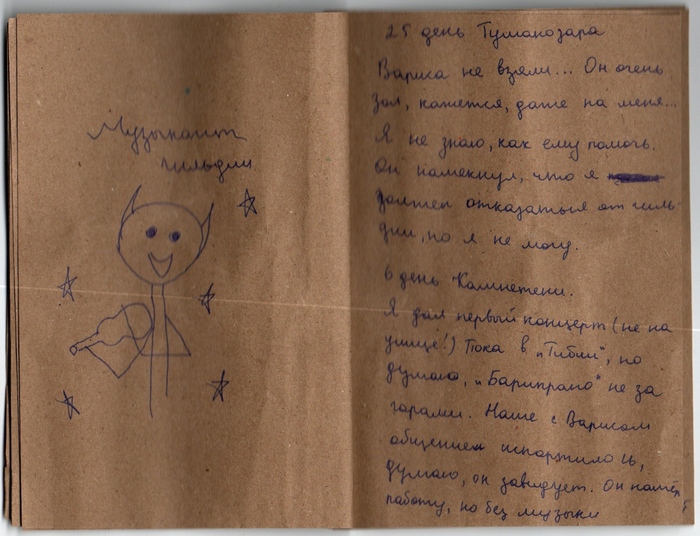 Музыкант
гильдии
25 день Туманозара
Вариса не взяли... Он очень
зол, кажется, даже на меня...
Я не знаю, как ему помочь.
Он намекнул, что я
должен отказаться от гиль-
дии, но я не могу.
6 день Кампетени.
Я дал первый концерт (не на
улице!) Пока в „Тибии", но
думаю, „Барикрано" не за
горами. Наше с Варисом
общением испортилось,
думаю, он завидует. Он нашёл
работу, но без музыки